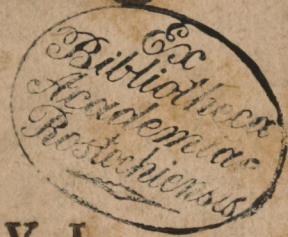 Ex
Bibliotheca
Academiae
Rostochiensis
V I